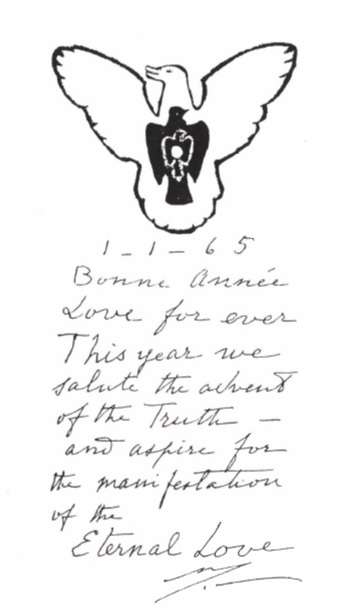 1 - 1 - 65
Bonne Année
Love for ever
This year we
salute the advent
of the Truth –
and aspire for
the manifestation
of the
Eternal Love